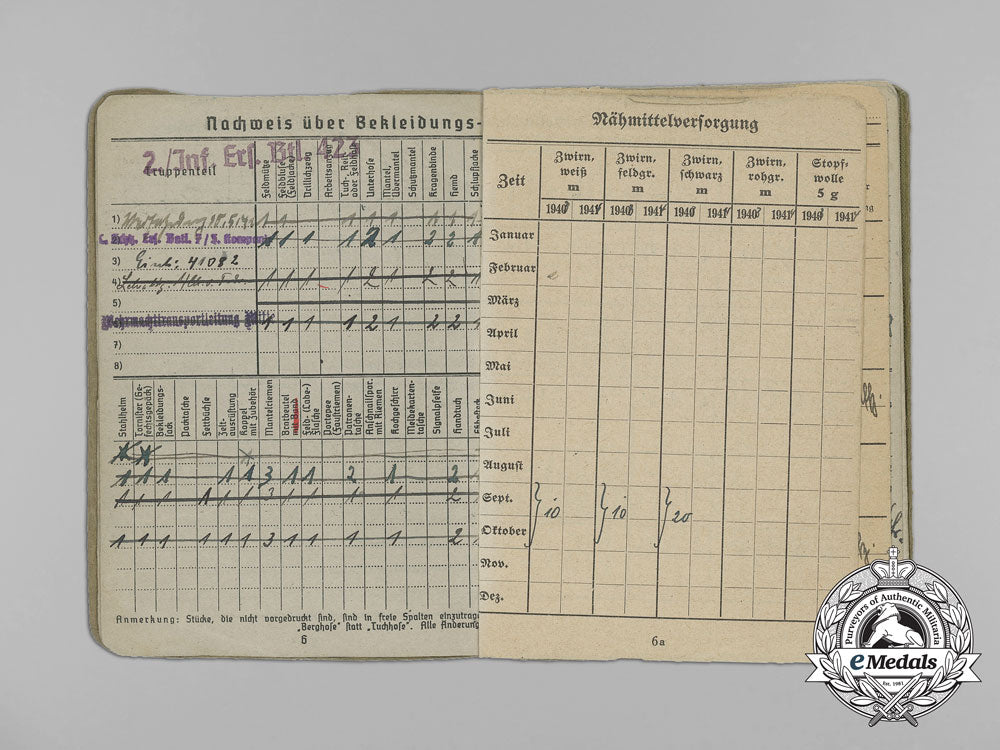 Nachweis über Bekleidungs-
2./Inf. Ers. Btl. 423
Truppenteil
Feldmütze
Feldbluse (Feldjacke)
Drillichzeug
Arbeitsanzug
Tuch-, Reit- oder Feldhose
Unterhose
Mantel, Übermantel
Schutzmantel
Kragenbinde
Hemd
Schlupfjacke
1)
1 1 1 1 1 1 1 1
1 1 1 1 2 1 2 2 1
3) Einh: 41082
4)
1 1 1 1 2 1 2 2 1
5)
Wehrmachttransportleitung
1 1 1 1 2 1 2 2 1
7)
8)
Stahlhelm
Tornister (Gefechtsgepäck)
Bekleidungssack
Packtasche
Fettbüchse
Zeltausrüstung
Koppel mit Zubehör
Mantelriemen
Brotbeutel mit Band
Feld- (Labe-) Flasche
Portepee (Faustriemen)
Patronentasche
Anschnallspor. mit Riemen
Kochgeschirr
Meldekartentasche
Signalpfeife
Handtuch
1 1 1 1 1 3 1 1 2 1 2
1 1 1 1 1 1 3 1 1 1 1 2
1 1 1 1 1 1 3 1 1 1 1 2
Anmerkung: Stücke, die nicht vorgedruckt sind, sind in freie Spalten einzutrage
„Berghose" statt „Tuchhose". Alle Änderung
6
Nähmittelversorgung
Zeit
Zwirn, weiß m
Zwirn, feldgr. m
Zwirn, schwarz m
Zwirn, rohgr. m
Stopfwolle 5 g
1940 1941 1940 1941 1940 1941 1940 1941 1940 1941
Januar
Februar
März
April
Mai
Juni
Juli
August
Sept.
10 10 20
Oktober
Nov.
Dez.
6a
Purveyors of Authentic Militaria
eMedals
Est. 1981